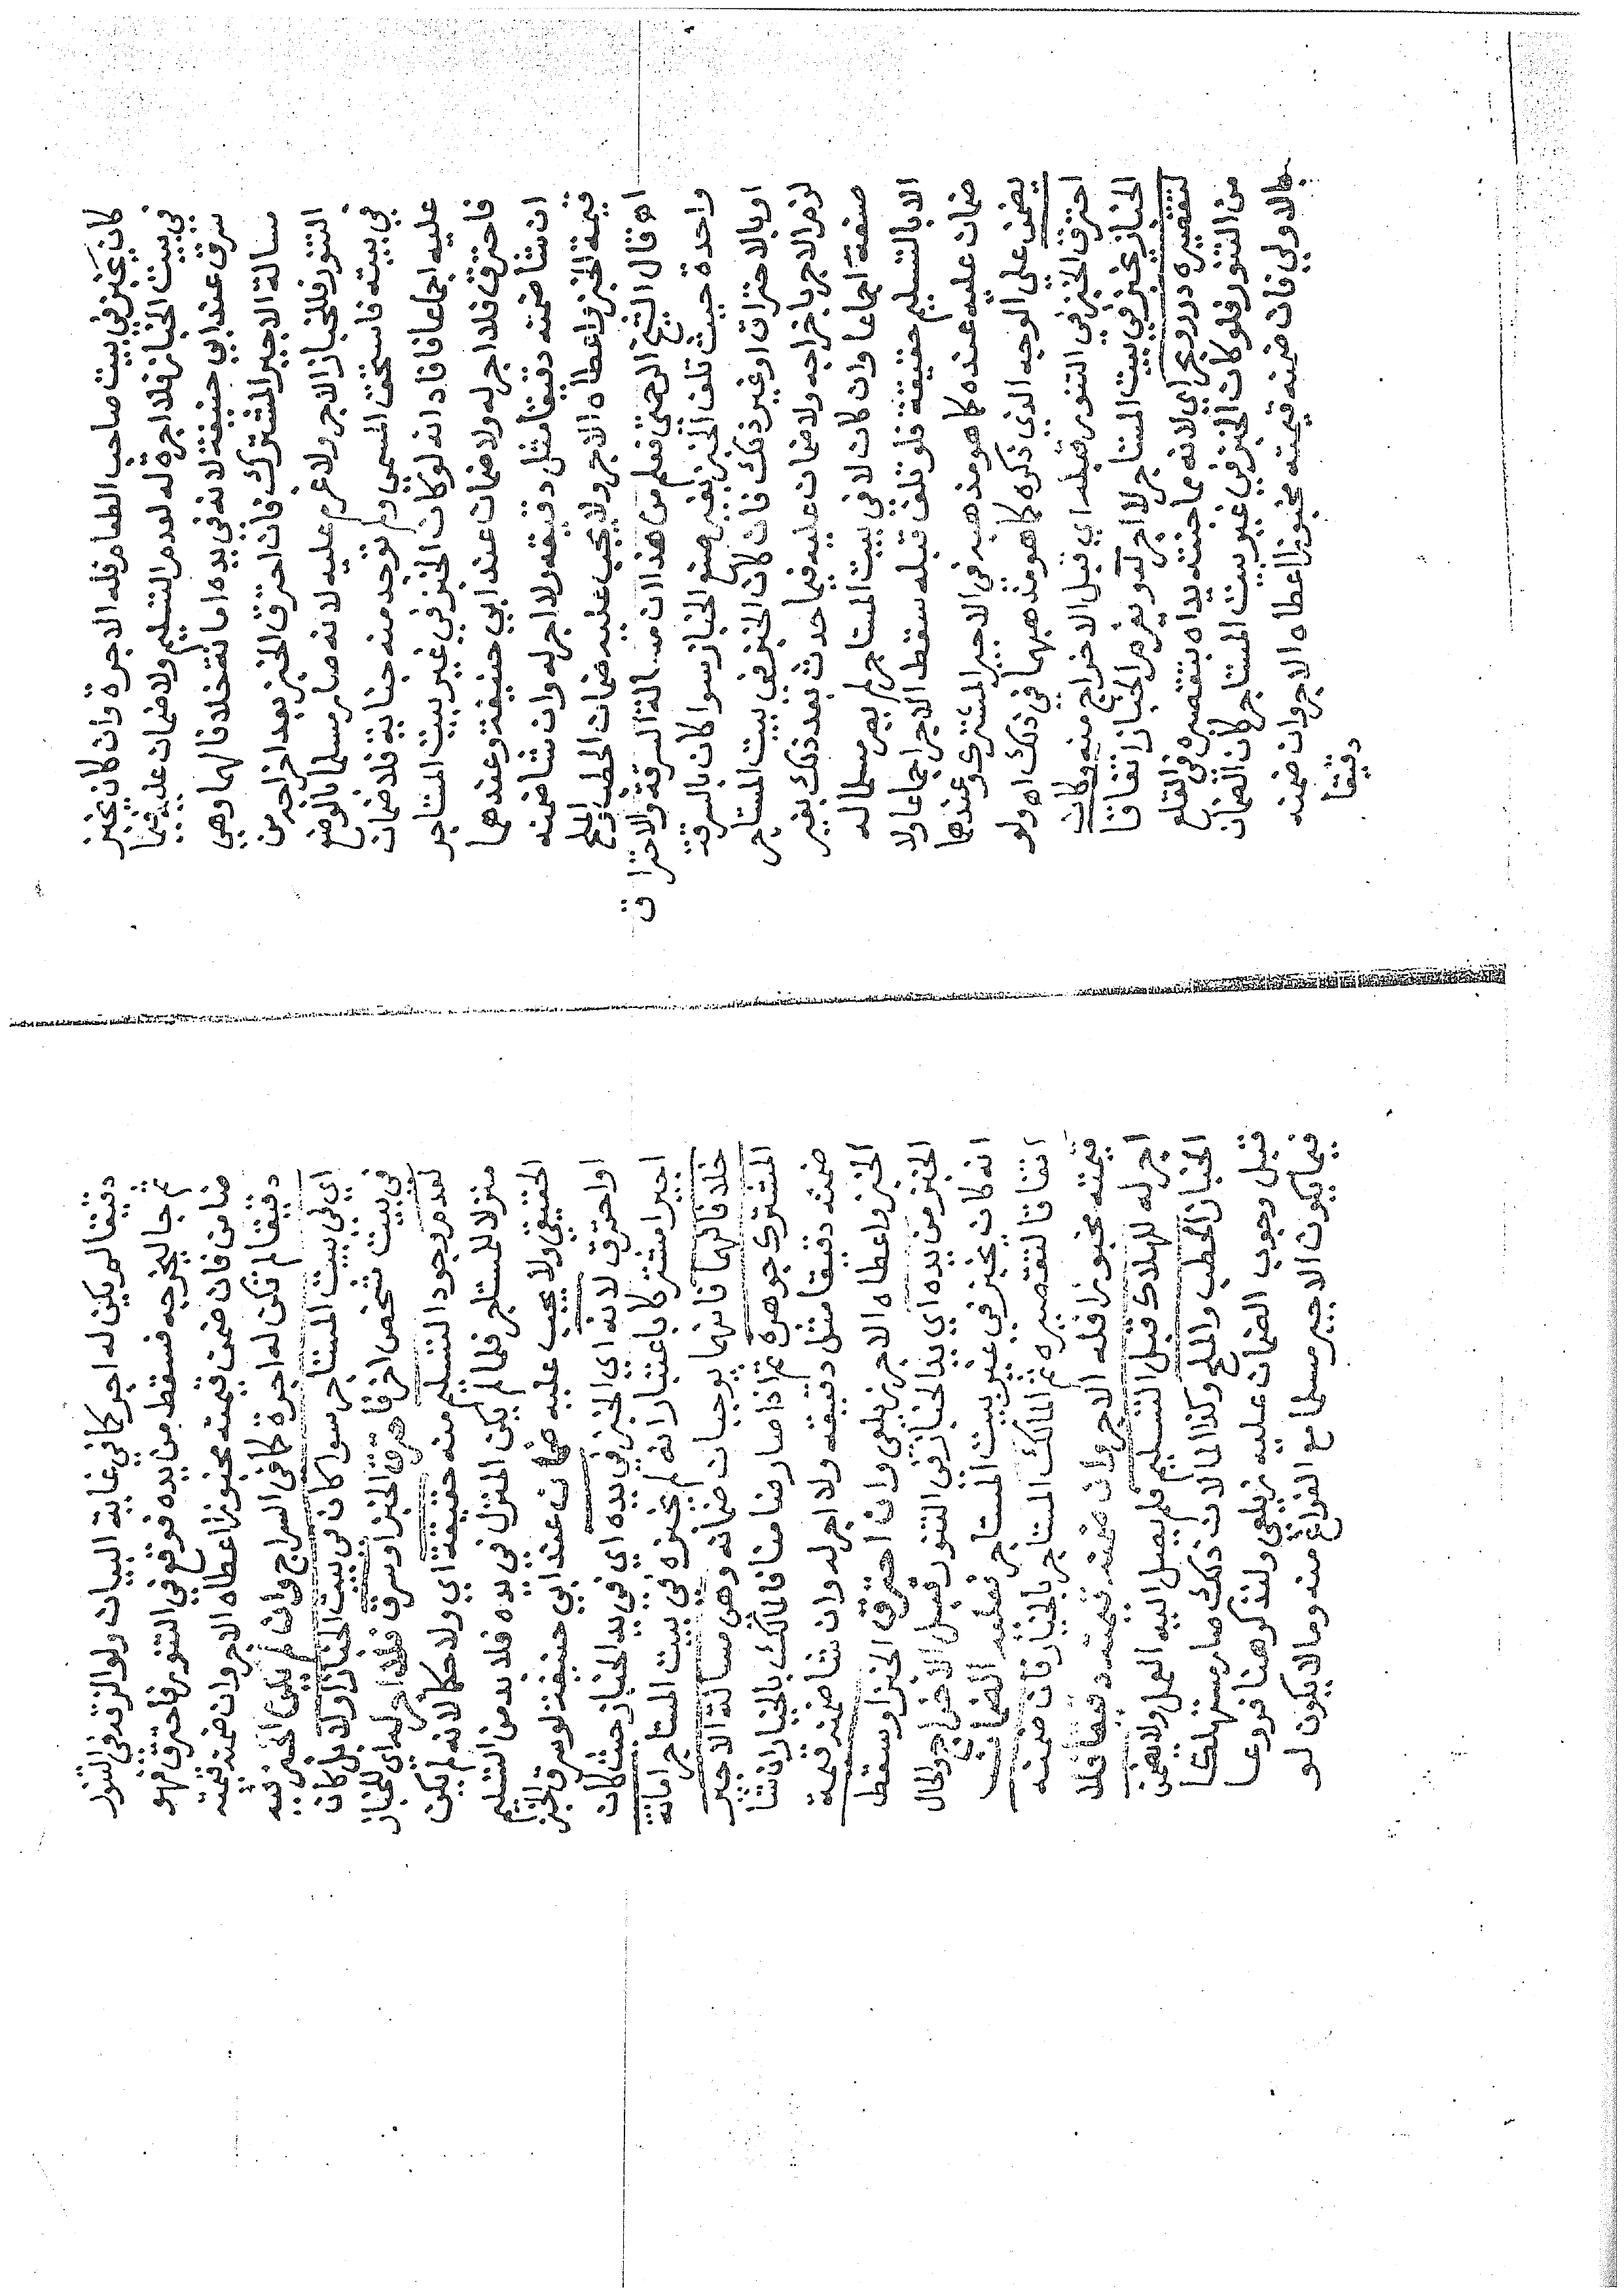 كان يخبز في بيت صاحب الطعام فله الاجرة وان كان يخبز
في بيت الخباز فلا اجرة له لعدم التسليم ولا ضمان عليه فيما
سرق عند ابي حنيفة لانه في يده امانة خلافا لهما وهي
مسالة الاجير المشترك فان احترق الخبز بعد اخراجه من
التنور فللخباز الاجر ولا غرم عليه لانه صار مسلما بالوضع
في بيته فاستحق المسمي ولم توجد منه جناية فلا ضمان
عليه اجماعا فافاد انه لو كان الخبز في غير بيت المستاجر
فاحترق فلا اجر له ولا ضمان عند ابي حنيفة وعندهما
ان شا ضمنه دقيقا مثل دقيقه ولا اجر له وان شا ضمنه
قيمة الخبز واعطاه الاجر ولا يجب عليه ضمان الحطب والملح
اه قال الشيخ الرحمتي فعلم من هذا ان مسالة السرقة والاحتراق
واحدة حيث تلف الخبز بغير صنع الخباز سوا كان بالسرقة
او بالاحتراق او غير ذلك فان كان الخبز في بيت المستاجر
لزم الاجر باخراجه ولا ضمان عليه فيما حدث بعد ذلك بغير
صنعه اجماعا وان كان لا في بيت المستاجر لم يصر مسلما له
الا بالتسليم حقيقة فلو تلف قبله سقط الاجر اجماعا ولا
ضمان عليه عنده كما هو مذهبه في الاجير المشترك وعندهما
يضمن علي الوجه الذي ذكره كما هو مذهبهما في ذلك اه ولو
احترق الخبز في التنور قبله اي قبل الاخراج منه وكان
الخباز يخبز في بيت المستاجر لا اجر له ويغرم الخباز اتفاقا
لتقصيره درر وبحر اي لانه مما جنته يداه بتقصيره في القلع
من التنور فلو كان الخبز في غير بيت المستاجر كان الضمان
بالاولي فان ضمنه قيمته مخبوزا اعطاه الاجر وان ضمنه
دقيقا
دقيقا لم يكن له اجر كما في غاية البيان ولو الزقه في التنور
ثم جا ليخرجه فسقط من يده فوقع في التنور فاحترق فهو
ضامن فان ضمن قيمته مخبوزا اعطاه الاجر وان ضمنه قيمته
دقيقا لم تكن له اجرة كما في السراج وان لم يكن الخبز فيه
اي في بيت المستاجر سوا كان في بيت الخباز اولا بل كان
في بيت شخص اخر فاحترق الخبز او سرق فلا اجر له اي للخباز
لعدم وجود التسليم منه حقيقة اي ولا حكما لانه لم يكن
منزلا للمستاجر فلما لم يكن المنزل في يده فلا بد من التسليم
الحقيقي ولا يجب عليه ضمان عند ابي حنيفة لو سرق الخبز
او احترق لانه اي الخبز في يده اي في يد الخباز حيث كان
اجيرا مشتركا باعتبار انه لم يخبزه في بيت المستاجر امانة
خلافا لهما فانهما يوجبان ضمانه وهي مسالة الاجير
المشترك جوهره ثم اذا صار ضامنا فالمالك بالخيار ان شا
ضمنه دقيقا مثل دقيقه ولا اجر له وان شا ضمنه قيمة
الخبز واعطاه الاجر زيلعي وان احترق الخبز او سقط
الخبز من يده اي يد الخباز في التنور قبل الاخراج والحال
انه كان يخبز في غير بيت المستاجر فعليه الضمان
اتفاقا لتقصيره ثم المالك المستاجر بالخيار فان ضمنه
قيمته مخبوزا فله الاجر وان ضمنه قيمته دقيقا فلا
اجر له للهلاك قبل التسليم فلم يصل اليه العمل ولا يضمن
الخباز الحطب والملح وكذا المالان ذلك صار مستهلكا
قبل وجوب الضمان عليه زيلعي ولنذكر هنا فروعا
فيما يكون الاجير مسلما مع الفراغ منه وما لا يكون لو